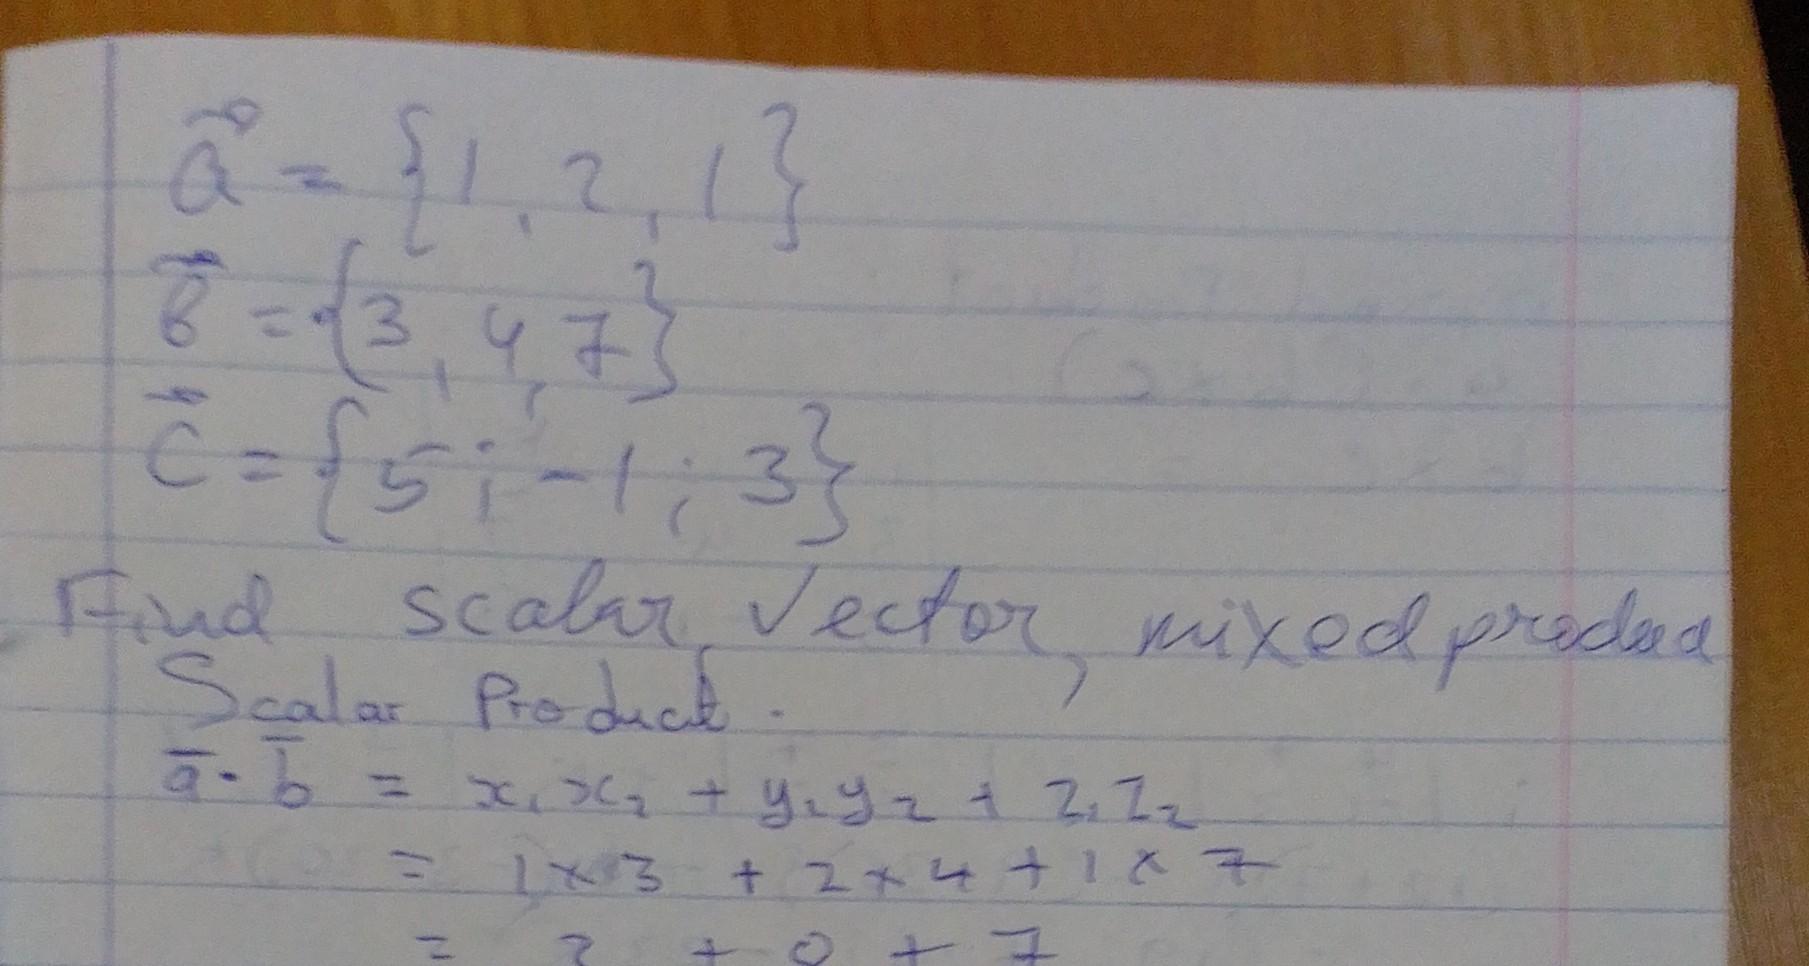 a = {1, 2, 1}
b = {3, 4, 7}
c = {5; -1; 3}
Find scalar, vector, mixed
Scalar Product.
a · b = x₁x₂ + y₁y₂ + z₁z₂
= 1 × 3 + 2 × 4 + 1 × 7
+ 7